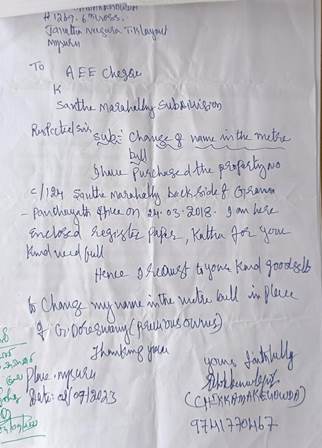 # 1267, 6th cross,
Janatha nagara T.K layout
Mysuru
To
AEE Chesse
K
Santhe Marahally Subdivision
Respected sir
Sub: Change of name in the metre
bill
I have Purchased the property No
c/124 Santhe Marahally back side of Grama
- Panchayath office on 24.03.2018. I am here
Enclosed register paper, Katha for your
Kind need full
Hence I request to your Kind goodself
to Change my name in the metre bill in place
of G. Doreswamy (previous owner)
Thanking you
yours faithfully
Place. mysuru
(CHIKKAMAKEGOWDA)
Date: 04/09/2023
9741770467